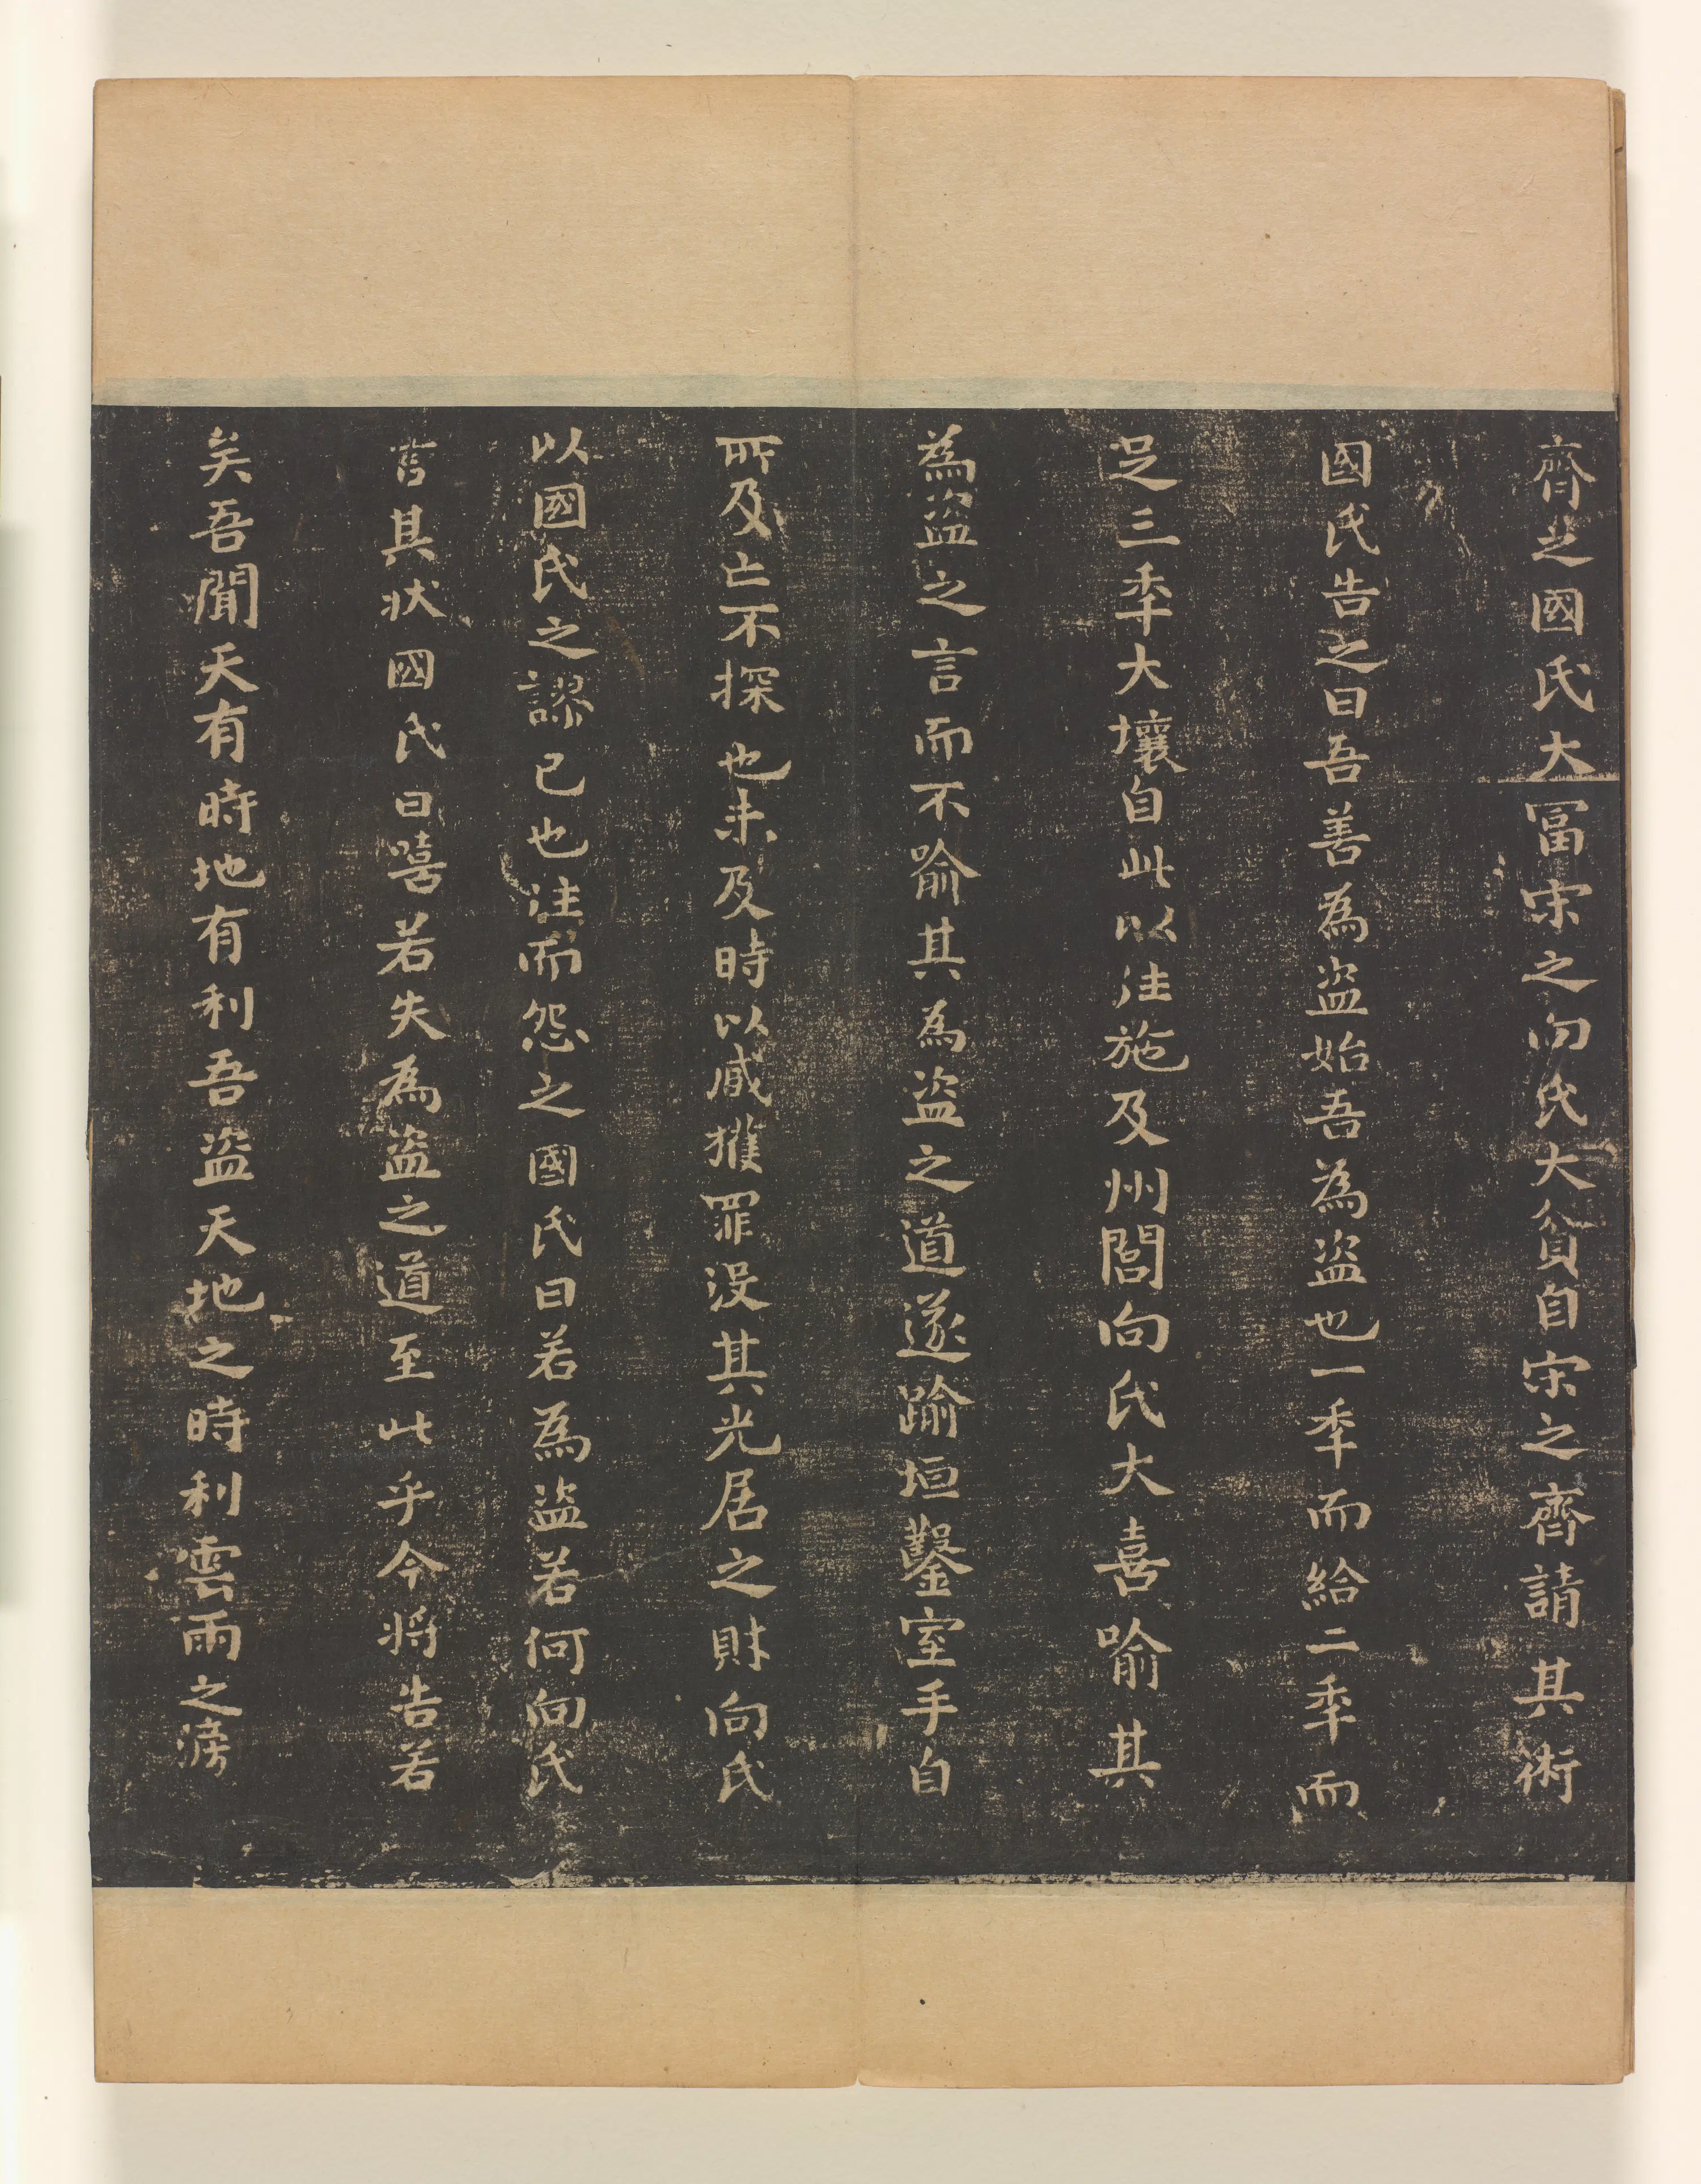 齊之國氏大冨宋之向氏大貧自宋之齊請其術
國氏告之曰吾善為盗始吾為盗也一秊而給二秊而
足三秊大壤自此以往施及州閭向氏大喜喻其
為盗之言而不喻其為盗之道遂踰垣鑿室手目
所及亡不探也未及時以臧獲罪没其先居之財向氏
以國氏之謬己也往而怨之國氏曰若為盗若何向氏
言其状國氏曰嘻若失為盗之道至此乎今将告若
矣吾聞天有時地有利吾盗天地之時利雲雨之滂